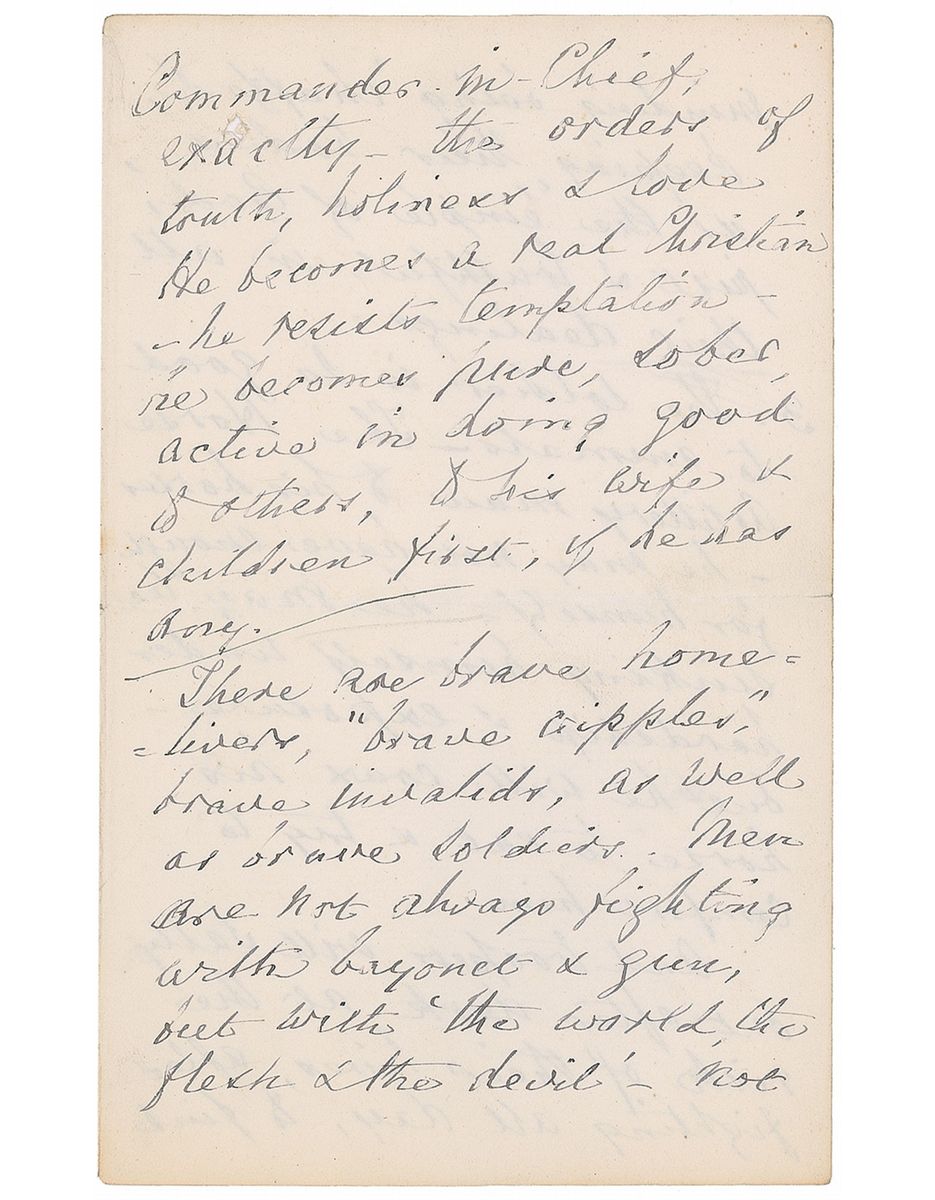 Commander-in-Chief,
exactly – the orders of
truth, holiness & love
He becomes a real Christian
– he resists temptation –
he becomes pure, sober,
active in doing good
to others, to his wife &
children first, if he has
any.
There are brave home=
=livers, "brave cripples,"
brave invalids, as well
as brave soldiers. Men
are not always fighting
with bayonet & gun,
but with 'the world, the
flesh & the devil' – not